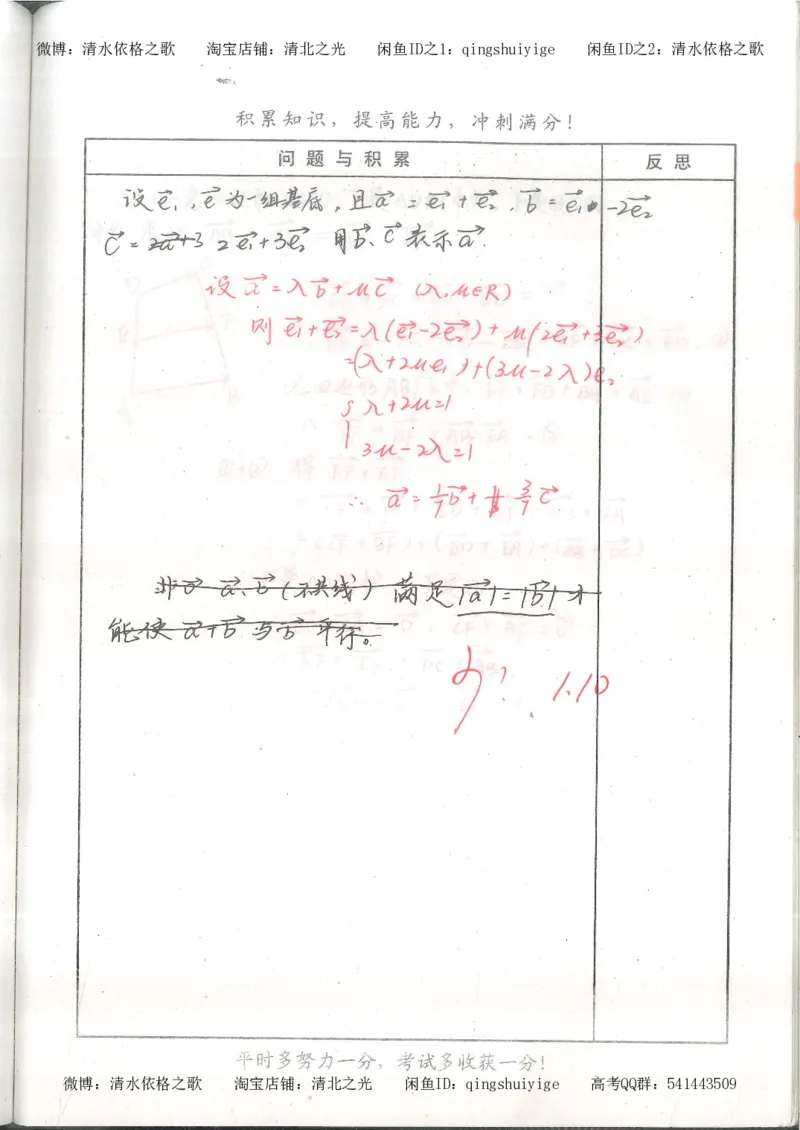 微博：清水依格之歌 淘宝店铺：清北之光 闲鱼ID之1：qingshuiyige 闲鱼ID之2：清水依格之歌
积累知识，提高能力，冲刺满分！
问题与积累 反思
设e₁，e为一组基底，且a=e₁+e₂，b=e₁-2e₂
C=2a+3 2e₁+3e₂ 用b、c表示a.
设a=λb+μc (λ,μ∈R)
则e₁+e₂=λ(e₁-2e₂)+μ(2e₁+3e₂)
=(λ+2μe₁)+(3μ-2λ)e₂
λ+2μ=1
3μ-2λ=1
∴ a=1/7b+3/7c
非0 a、b(不共线) 满足|a|=|b|才
能使a+b与b平行。
? 1.10
平时多努力一分，考试多收获一分！
微博：清水依格之歌 淘宝店铺：清北之光 闲鱼ID：qingshuiyige 高考QQ群：541443509